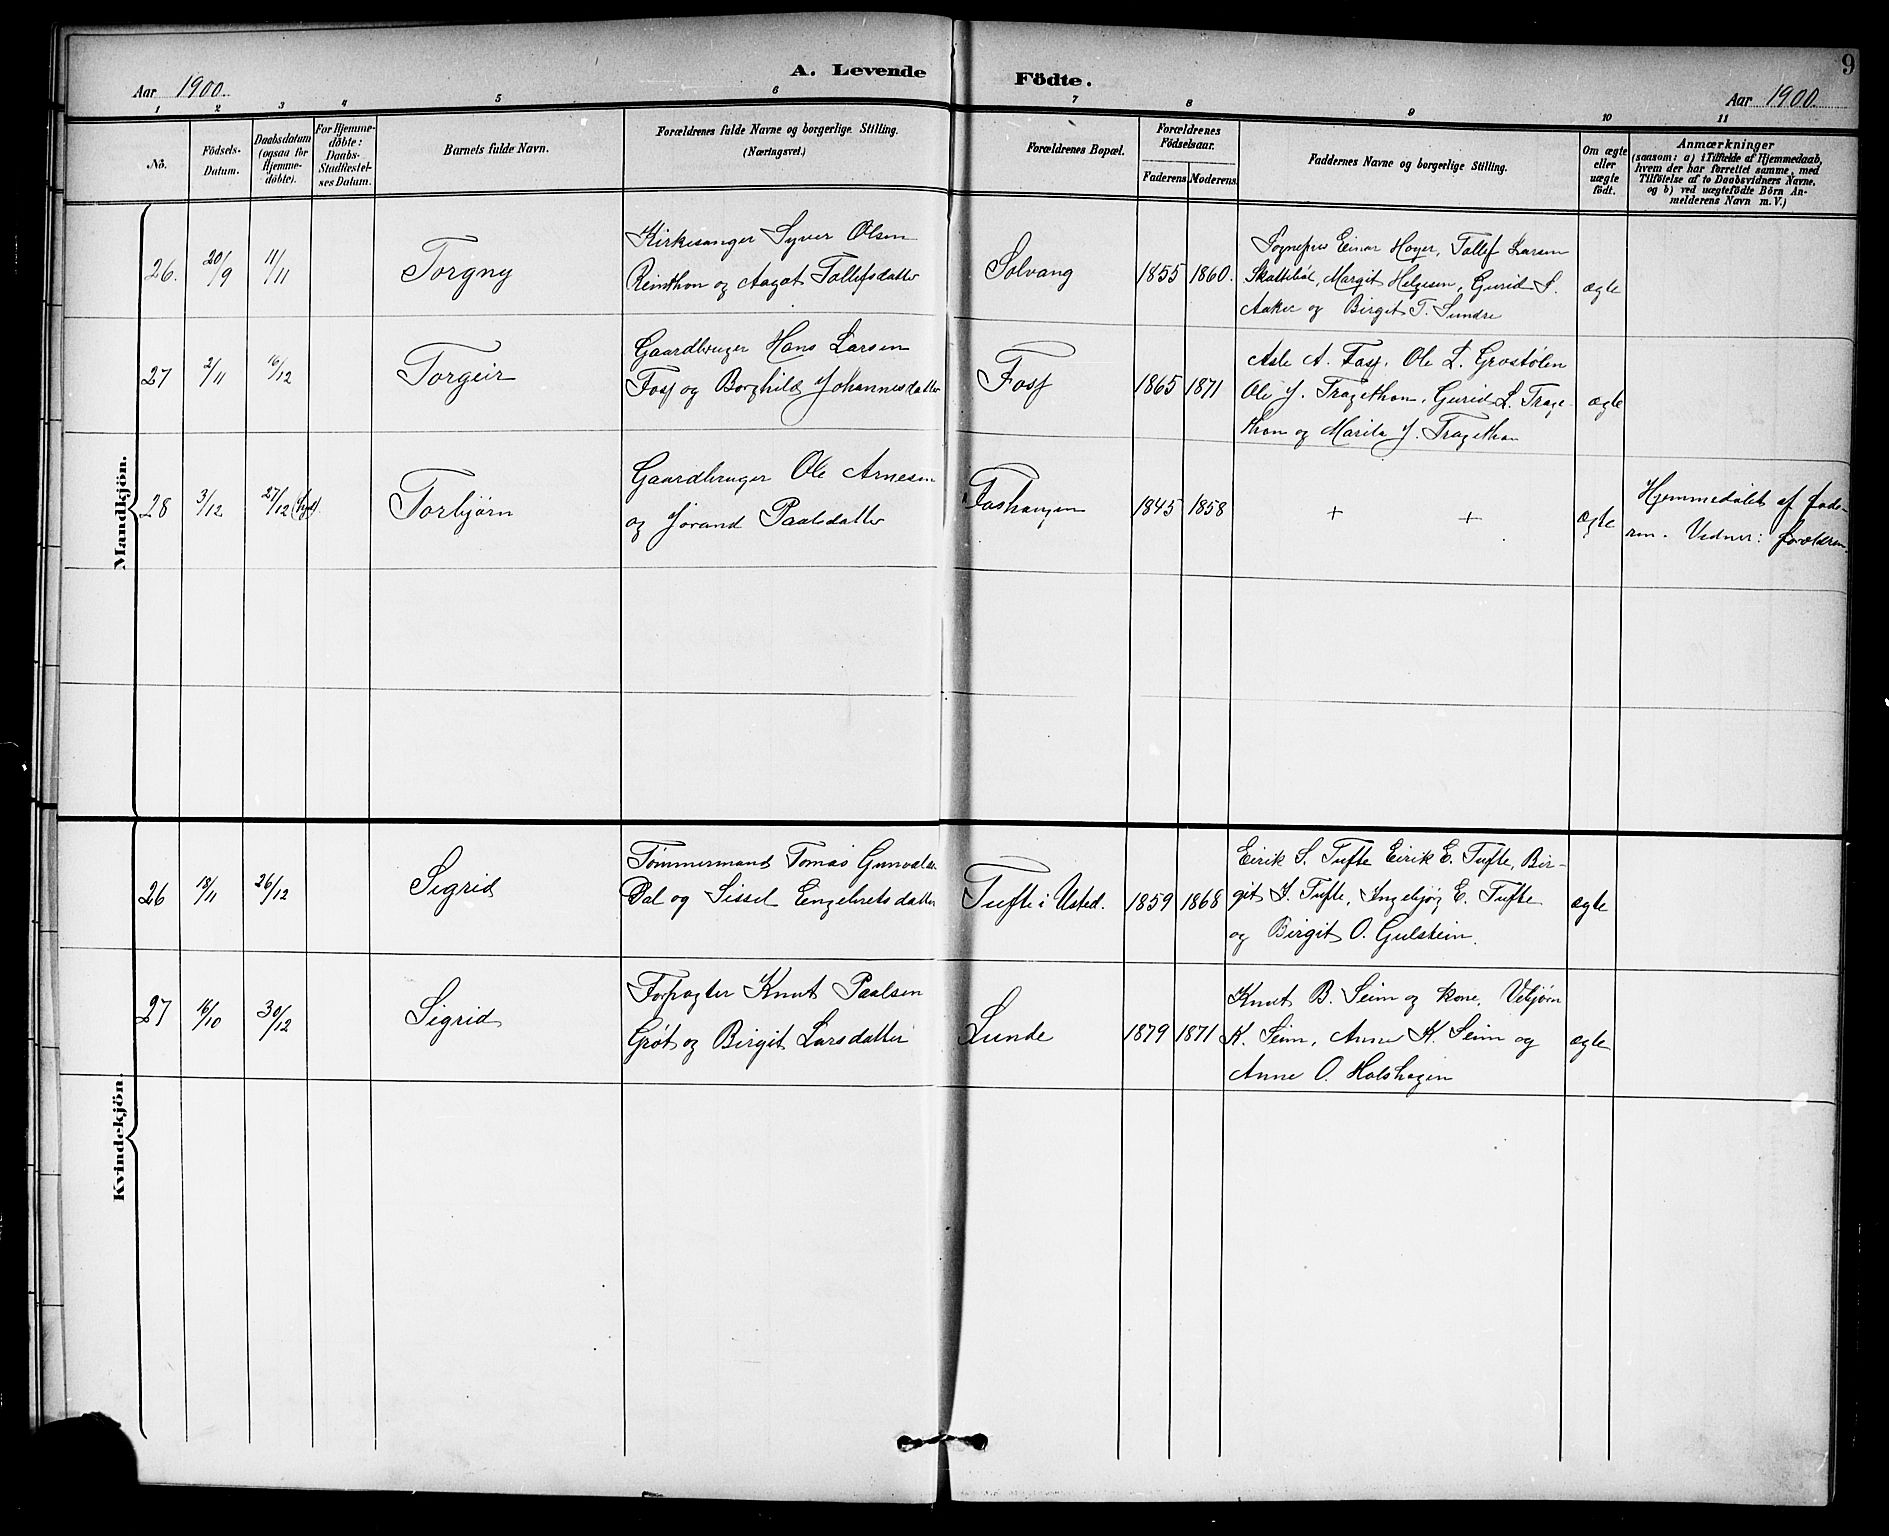 9
A. Levende Födte.
Aar 1900.
Aar 1900.
1 2 3 4 5 6 7 8 9 10 11
Nö.
Födsels-
Datum.
Daabsdatum
(ogsaa for
Hjemme-
döbte).
For Hjemme-
döbte:
Daabs-
Stadfæstel-
ses Datum.
Barnets fulde Navn.
Forældrenes fulde Navne og borgerlige Stilling.
(Næringsvei.)
Forældrenes Bopæl.
Forældrenes
Födselsaar.
Faderens. Moderens.
Faddernes Navne og borgerlige Stilling.
Om ægte
eller
uægte
födt.
Anmærkninger
(saasom: a) i Tilfælde af Hjemmedaab,
hvem der har forrettet samme, med
Tilföielse af to Daabsvidners Navne,
og b) ved uægtefödte Börn An-
melderens Navn m. V.)
Mandkjön.
26. 20/9 11/11 Torgny
Kirkesanger Syver Olsen
Reinthon og Aagot Tollefsdatter
Solvang 1855 1860.
Sognepr. Einar Hoyer, Tollef Larsen
Skattebøl, Margit Helgesen, Gurid S.
Aaker og Birgit T. Sundre
ægte
27 2/11 16/12 Torgeir
Gaardbruger Hans Larsen
Foss og Borghild Johannesdatter
Foss 1865 1871
Asle A. Foss, Ole L. Grostølen
Ole J. Tragethon, Gurid L. Trage-
thon og Marita J. Tragethon
ægte
28 3/12 27/12 Torbjørn
Gaardbruger Ole Arnesen
og Jørand Paalsdatter
Foshaugen 1845 1858
+ +
ægte
Hjemmedøbt af fade-
ren. Vidner: forældren
Kvindekjön.
26 18/11 26/12 Sigrid
Tømmermand Tomas Gunvalds.
Dal og Sissel Engebretsdatter
Tufte i Usted. 1859 1868
Eirik S. Tufte Eirik E. Tufte, Bir-
git S. Tufte, Ingebjøg E. Tufte
og Birgit O. Gulstein.
ægte
27 16/10 30/12 Sigrid
Forpagter Knut Paalsen
Grøt og Birgit Larsdatter
Lunde 1879 1871
Knut B. Seim og kone, Vebjørn
K. Seim, Anne K. Seim og
Anne O. Holshagen
ægte